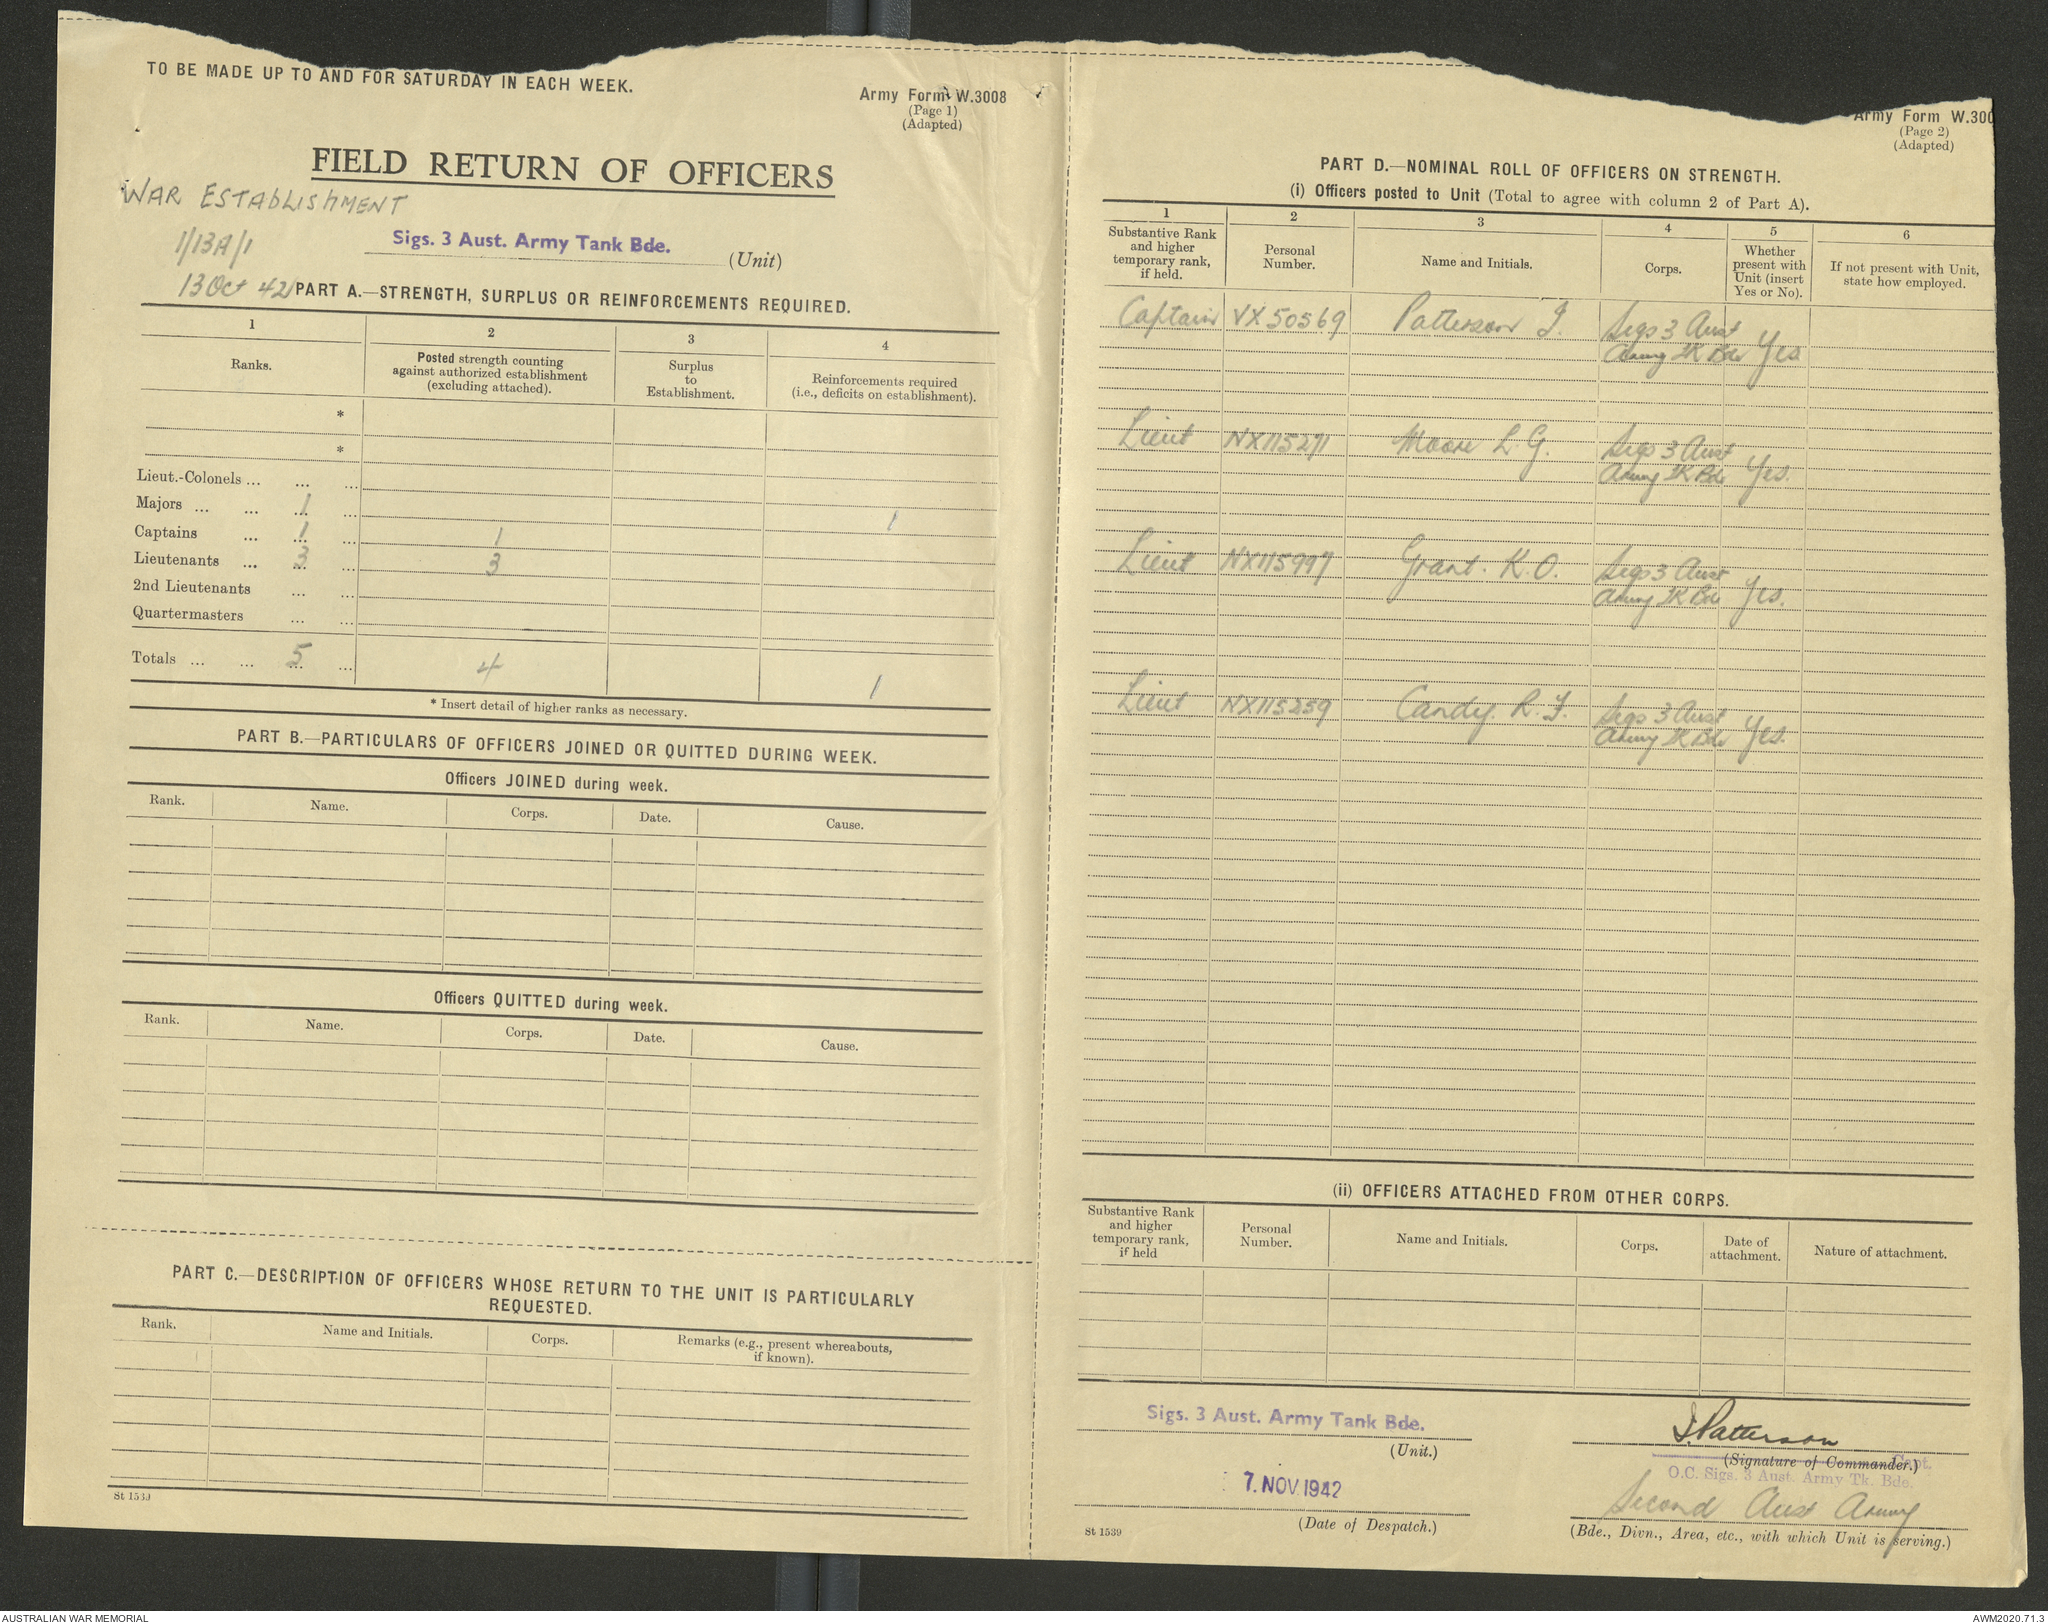 TO BE MADE UP TO AND FOR SATURDAY IN EACH WEEK.
Army Form W.3008
(Page 1)
(Adapted)
FIELD RETURN OF OFFICERS
WAR ESTABLISHMENT
1/13A/1
13 Oct 42
Sigs. 3 Aust. Army Tank Bde. (Unit)
PART A.—STRENGTH, SURPLUS OR REINFORCEMENTS REQUIRED.
1 2 3 4
Ranks. Posted strength counting against authorized establishment (excluding attached). Surplus to Establishment. Reinforcements required (i.e., deficits on establishment).
*
*
Lieut.-Colonels ... ... ...
Majors ... ... 1 ... 1
Captains ... 1 ... 1
Lieutenants ... 3 ... 3
2nd Lieutenants ... ...
Quartermasters ... ...
Totals ... ... 5 ... 4 1
* Insert detail of higher ranks as necessary.
PART B.—PARTICULARS OF OFFICERS JOINED OR QUITTED DURING WEEK.
Officers JOINED during week.
Rank. Name. Corps. Date. Cause.
Officers QUITTED during week.
Rank. Name. Corps. Date. Cause.
PART C.—DESCRIPTION OF OFFICERS WHOSE RETURN TO THE UNIT IS PARTICULARLY
REQUESTED.
Rank. Name and Initials. Corps. Remarks (e.g., present whereabouts, if known).
St 1539
Army Form W.300
(Page 2)
(Adapted)
PART D.—NOMINAL ROLL OF OFFICERS ON STRENGTH.
(i) Officers posted to Unit (Total to agree with column 2 of Part A).
1 2 3 4 5 6
Substantive Rank and higher temporary rank, if held. Personal Number. Name and Initials. Corps. Whether present with Unit (insert Yes or No). If not present with Unit, state how employed.
Captain VX50569 Patterson J. Sigs 3 Aust
Army TK Bde Yes
Lieut NX115271 Moore L. G. Sigs 3 Aust
Army TK Bde Yes.
Lieut NX115997 Grant. K. O. Sigs 3 Aust
Army TK Bde Yes.
Lieut NX115259 Candy. R. F. Sigs 3 Aust
Army TK Bde Yes.
(ii) OFFICERS ATTACHED FROM OTHER CORPS.
Substantive Rank and higher temporary rank, if held Personal Number. Name and Initials. Corps. Date of attachment. Nature of attachment.
Sigs. 3 Aust. Army Tank Bde.
(Unit.)
7. NOV. 1942
(Date of Despatch.)
J. Patterson
(Signature of Commander.) Capt.
O.C. Sigs. 3 Aust. Army Tk. Bde.
Second Aust Army
(Bde., Divn., Area, etc., with which Unit is serving.)
St 1539
AUSTRALIAN WAR MEMORIAL
AWM2020.71.3